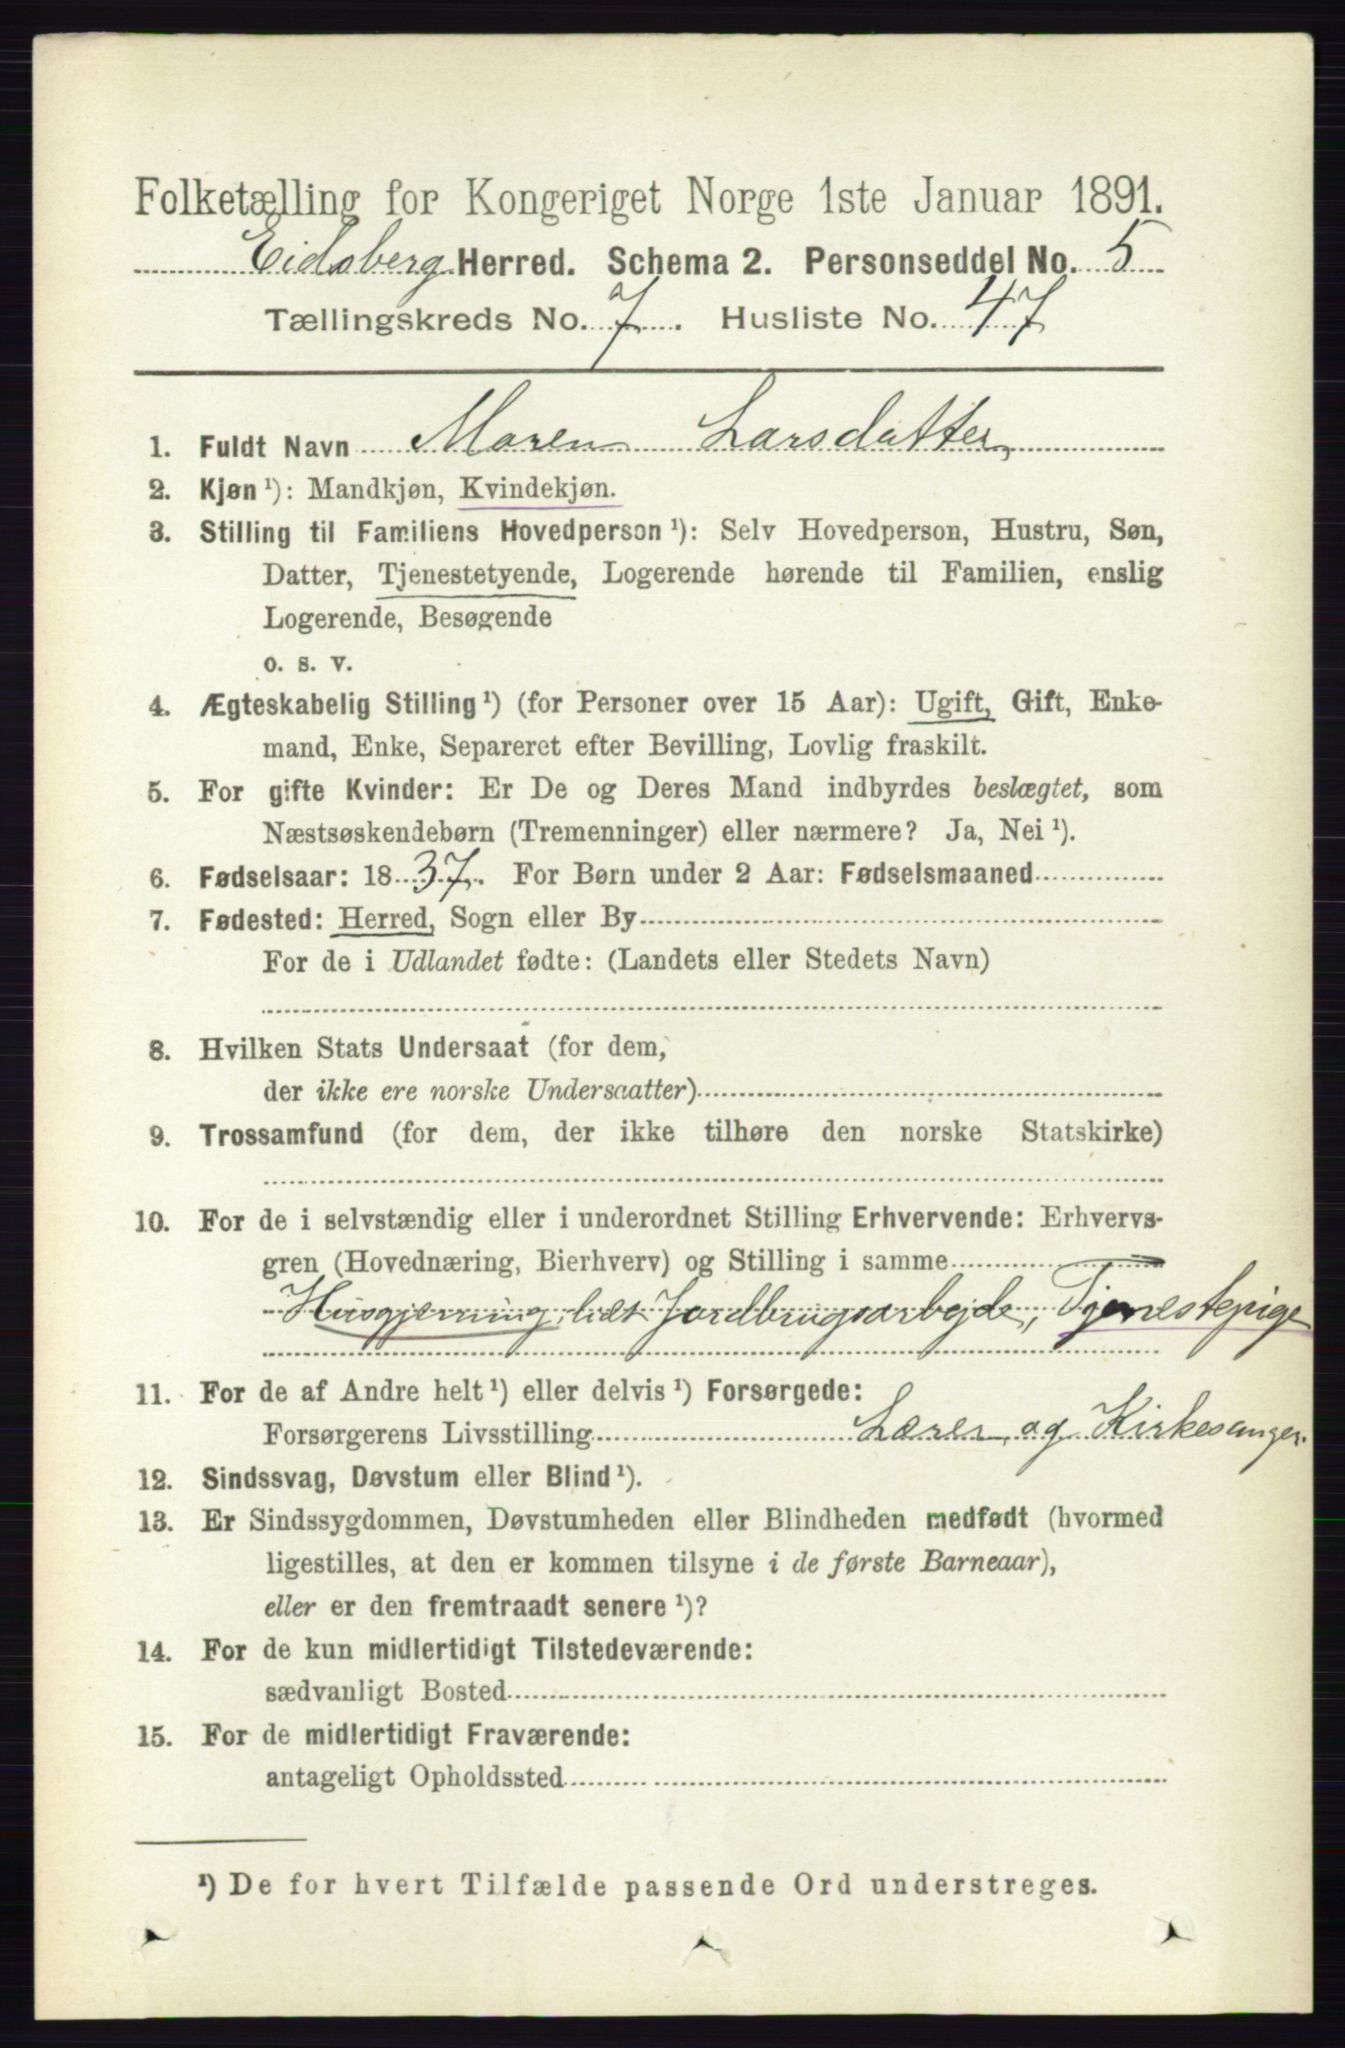 Folketælling for Kongeriget Norge 1ste Januar 1891.
Eidsberg Herred. Schema 2. Personseddel No. 5
Tællingskreds No. 7. Husliste No. 47
1. Fuldt Navn Maren Larsdatter
2. Kjøn ¹): Mandkjøn, Kvindekjøn.
3. Stilling til Familiens Hovedperson ¹): Selv Hovedperson, Hustru, Søn,
Datter, Tjenestetyende, Logerende hørende til Familien, enslig
Logerende, Besøgende
o. s. v.
4. Ægteskabelig Stilling ¹) (for Personer over 15 Aar): Ugift, Gift, Enke-
mand, Enke, Separeret efter Bevilling, Lovlig fraskilt.
5. For gifte Kvinder: Er De og Deres Mand indbyrdes beslægtet, som
Næstsøskendebørn (Tremenninger) eller nærmere? Ja, Nei ¹).
6. Fødselsaar: 1837. For Børn under 2 Aar: Fødselsmaaned
7. Fødested: Herred, Sogn eller By
For de i Udlandet fødte: (Landets eller Stedets Navn)
8. Hvilken Stats Undersaat (for dem,
der ikke ere norske Undersaatter)
9. Trossamfund (for dem, der ikke tilhøre den norske Statskirke)
10. For de i selvstændig eller i underordnet Stilling Erhvervende: Erhvervs-
gren (Hovednæring, Bierhverv) og Stilling i samme
Husgjerning, lidt Jordbrugsarbejde, Tjenestepige
11. For de af Andre helt ¹) eller delvis ¹) Forsørgede:
Forsørgerens Livsstilling Lærer og Kirkesanger.
12. Sindssvag, Døvstum eller Blind ¹).
13. Er Sindssygdommen, Døvstumheden eller Blindheden medfødt (hvormed
ligestilles, at den er kommen tilsyne i de første Barneaar),
eller er den fremtraadt senere ¹)?
14. For de kun midlertidigt Tilstedeværende:
sædvanligt Bosted
15. For de midlertidigt Fraværende:
antageligt Opholdssted
¹) De for hvert Tilfælde passende Ord understreges.